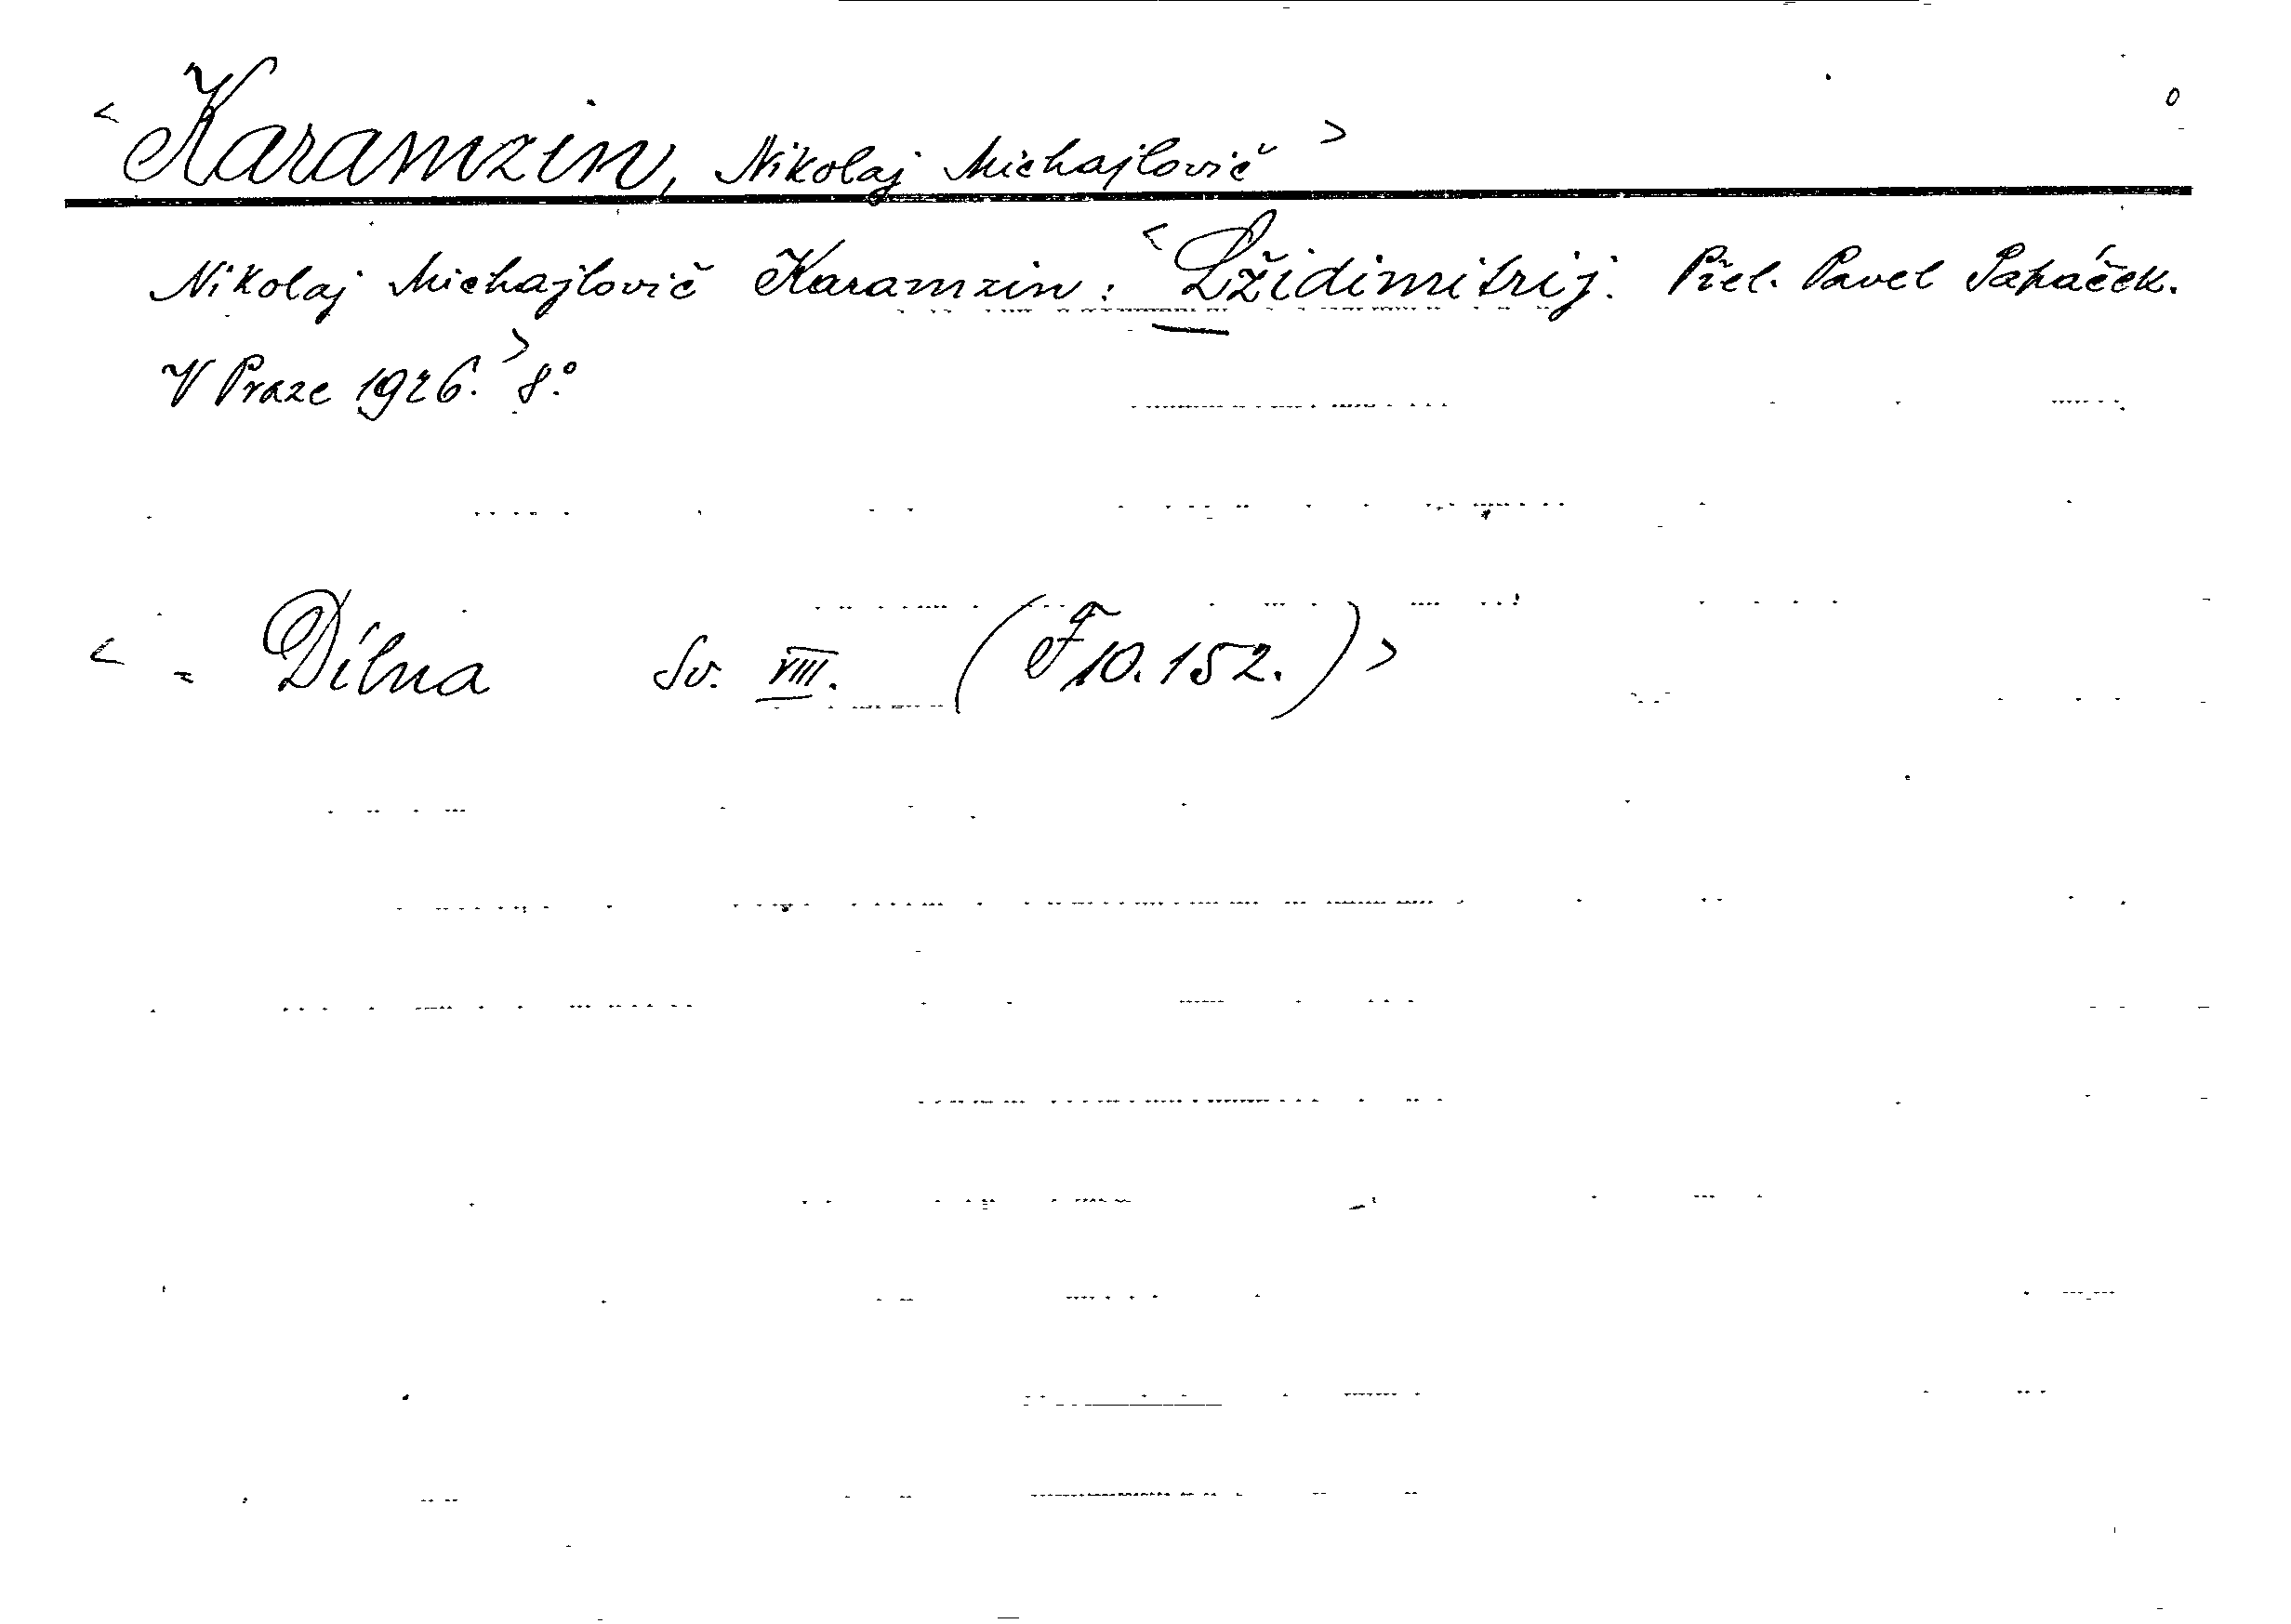 < Karamzin, Nikolaj Michajlovič > 0
Nikolaj Michajlovič Karamzin: < Lžidimitrij. Přel. Pavel Papáček.
V Praze 1926. > 8°.
< = Dílna Sv. VIII. (F 10.152.) >